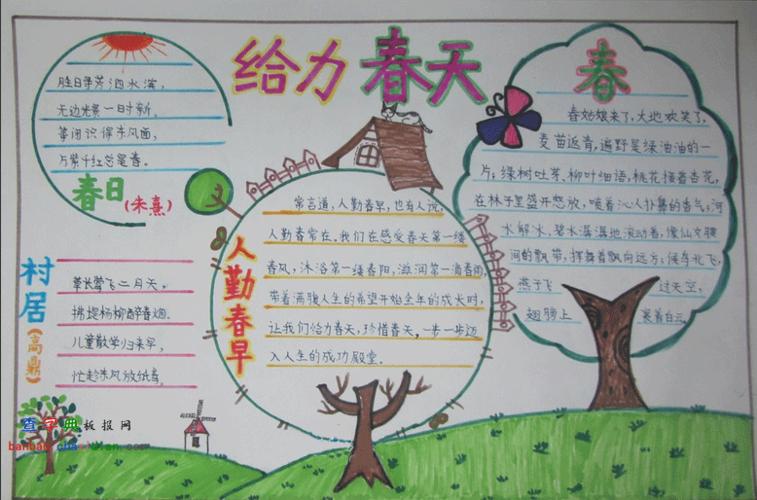 给力春天
胜日寻芳泗水滨，
无边光景一时新，
等闲识得东风面，
万紫千红总是春。
春日
(朱熹)
村居
(高鼎)
草长莺飞二月天，
拂堤杨柳醉春烟。
儿童散学归来早，
忙趁东风放纸鸢。
人勤春早
常言道，人勤春早，也有人说，
人勤春常在。我们在感受春天第一缕
春风，沐浴第一缕春阳，滋润第一滴春雨，
带着满载人生的希望开始全年的成长时，
让我们给力春天，珍惜春天，一步一步迈
入人生的成功殿堂。
春
春姑娘来了，大地欢笑了，
麦苗返青，遍野是绿油油的一
片，绿树吐芽、柳叶细语，桃花
杏花，
在林子里盛开怒放，喷着沁人扑鼻的香气，河
水解冰，碧水潺潺地流动着，像仙女腰
间的飘带，挥舞着飘向远方，候鸟北飞，
燕子飞
过天空，
翅膀上
裹着白云。
查字典板报网
banbao.chazidian.com